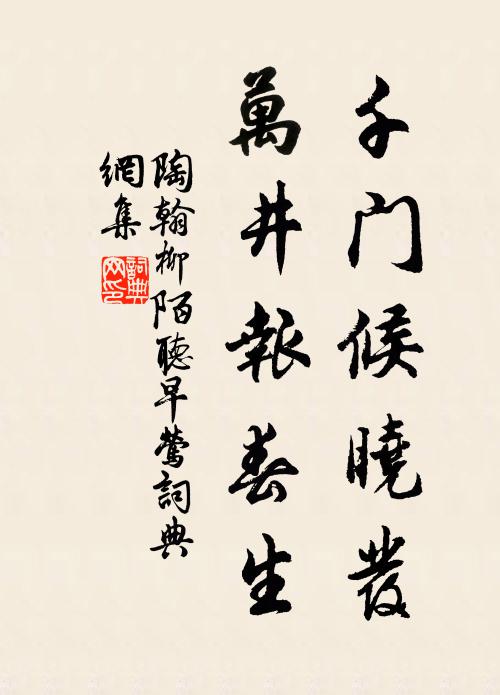 千門候曉發
萬井報春生
陶翰柳陌聽早鶯詞典
網集
詞典
网印